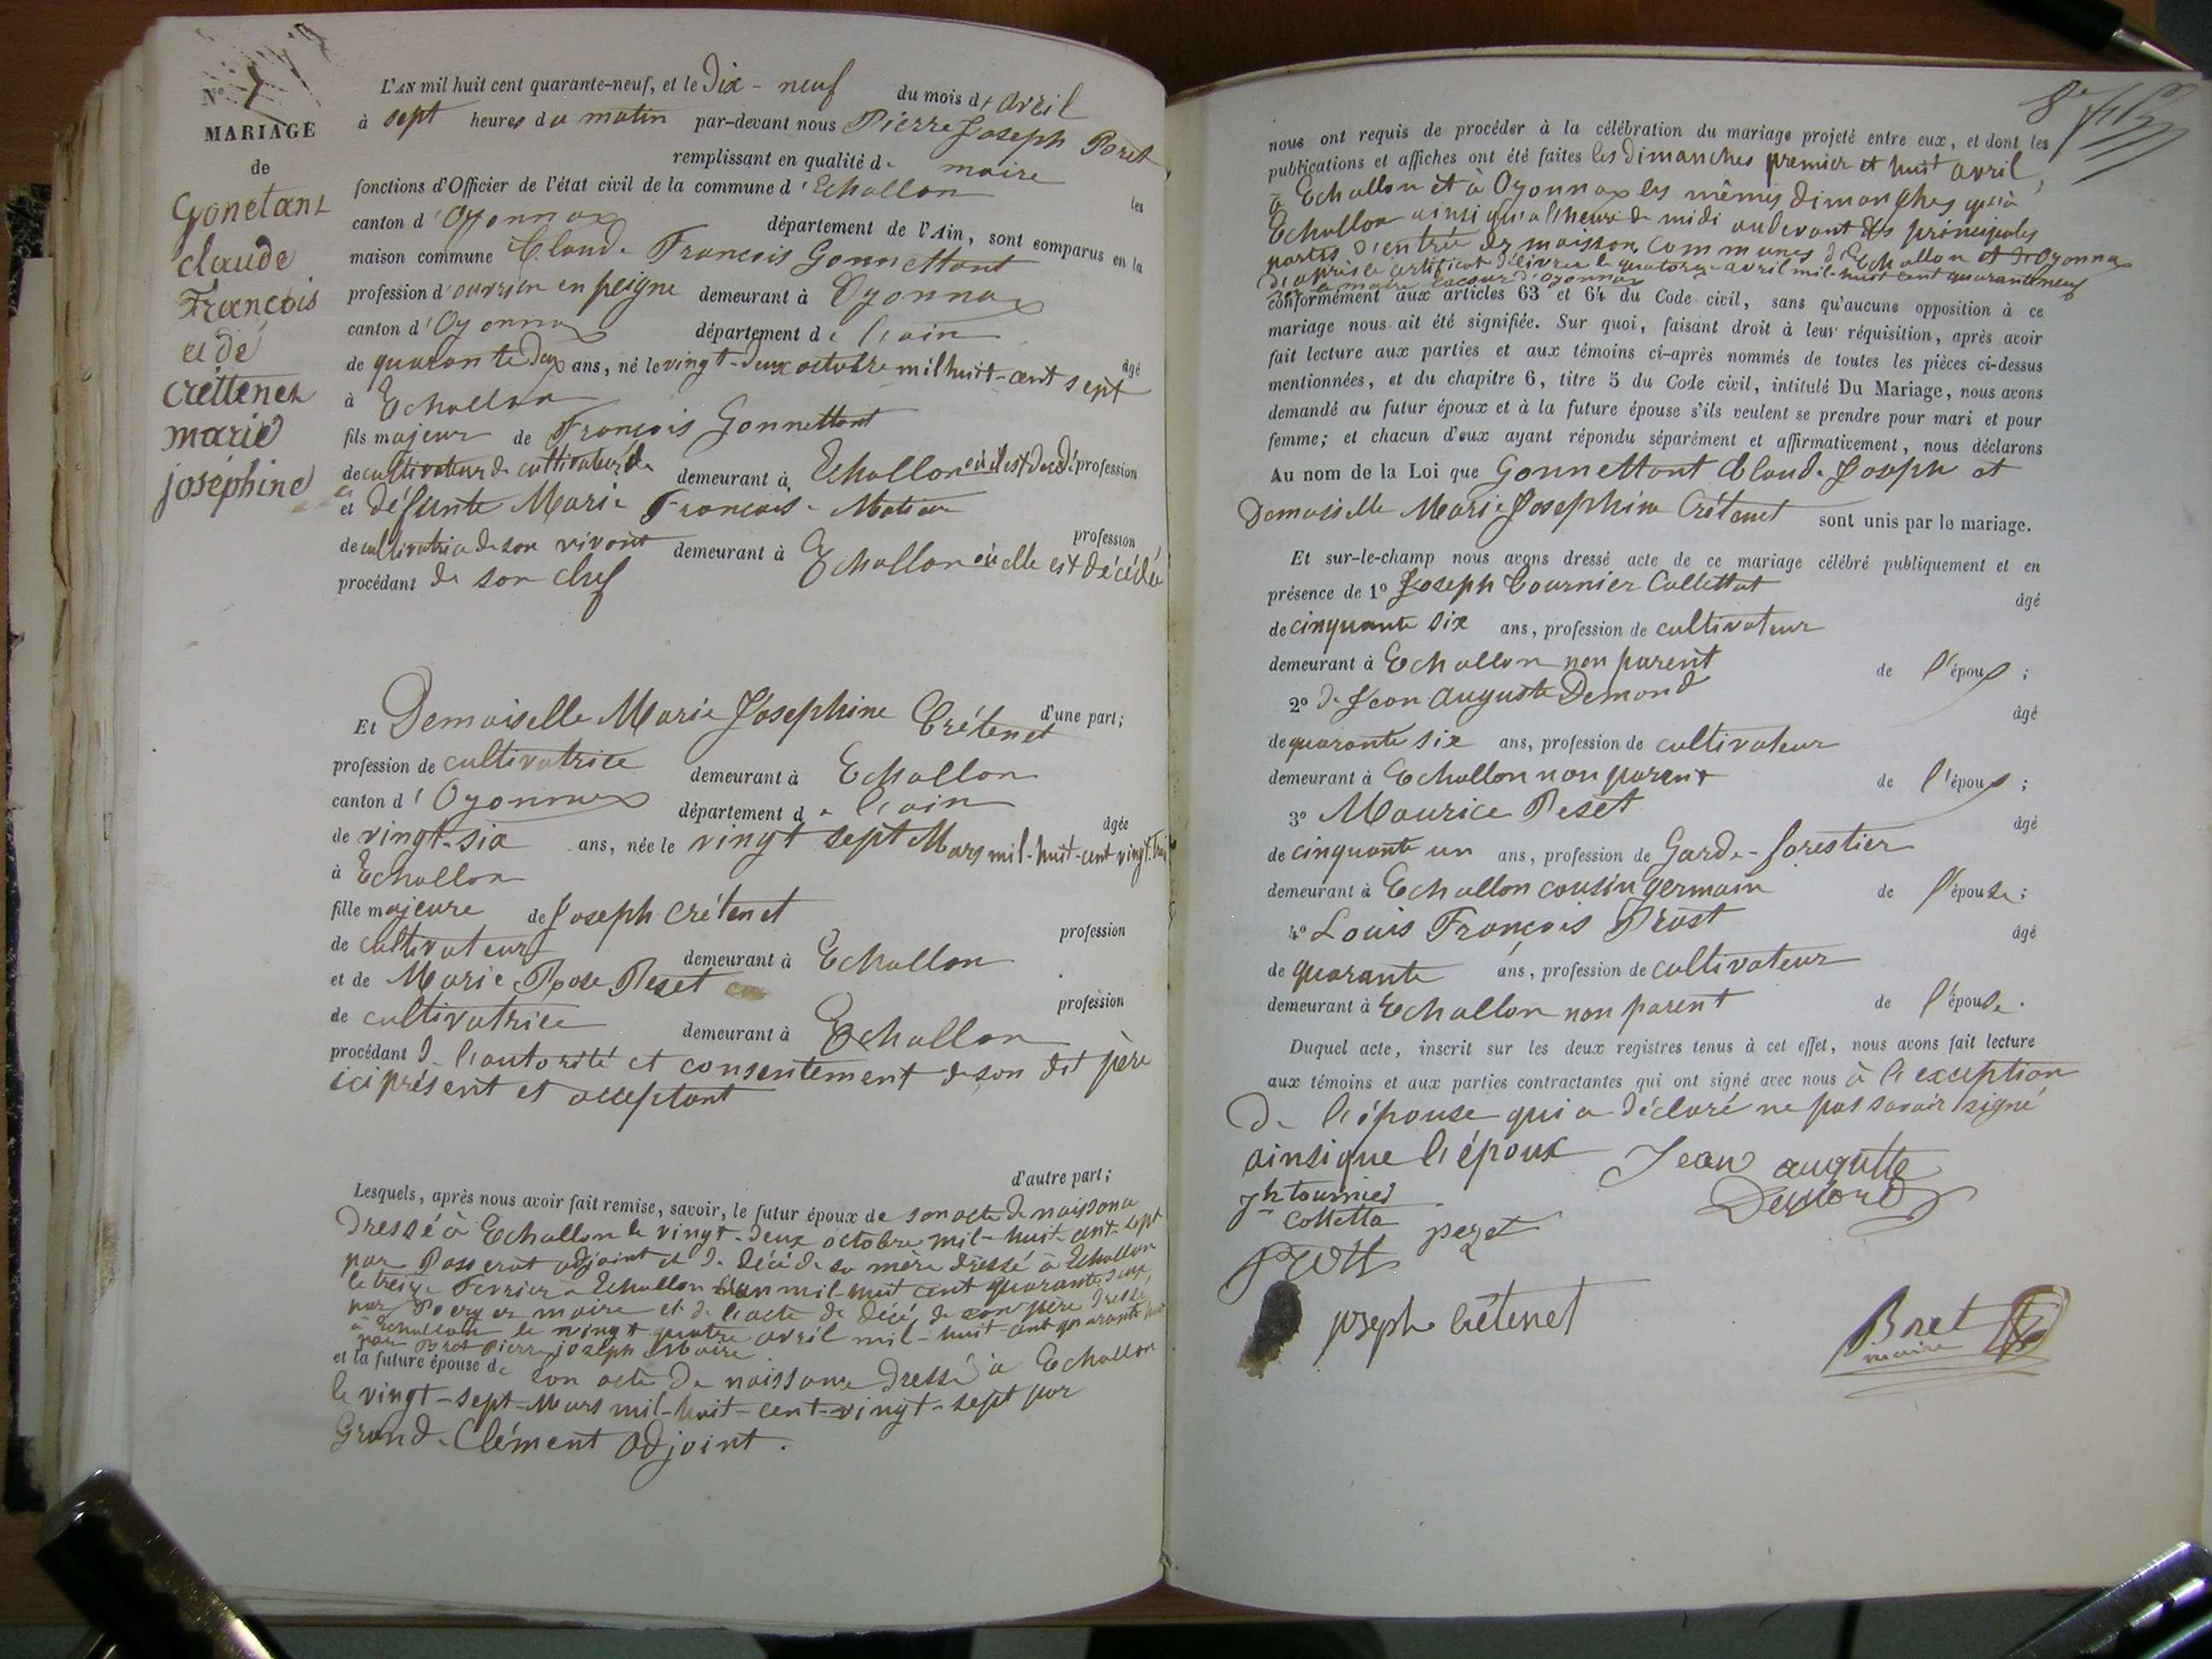 N° 7
MARIAGE
de
Gonetant
claude
François
et de
Crettenet
marie
joséphine
L'AN mil huit cent quarante-neuf, et le Dix-neuf du mois d'avril
à sept heures du matin par-devant nous Pierre Joseph Bret
maire remplissant en qualité de les
fonctions d'Officier de l'état civil de la commune d'Echallon
canton d'Oyonnax département de l'Ain, sont comparus en la
maison commune Claude François Gonnettant
profession d'ouvrier en peigne demeurant à Oyonnax
canton d'Oyonnax département de l'ain âgé
de quarante deux ans, né le vingt-deux octobre mil huit-cent sept
à Echallon
fils majeur de François Gonnettant
de cultivateur demeurant à Echallon où il est décédé profession
et défunte Marie Françoise
de cultivatrice de son vivant demeurant à Echallon où elle est décédée profession
procédant de son chef
d'une part;
Et Demoiselle Marie Josephine Crétenet
profession de cultivatrice demeurant à Echallon
canton d'Oyonnax département de l'ain
de vingt-six ans, née le vingt sept Mars mil-huit-cent vingt-trois âgée
à Echallon
fille majeure de Joseph Crétenet
de cultivateur demeurant à Echallon profession
et de Marie Rose Peset
de cultivatrice demeurant à Echallon profession
procédant de l'autorité et consentement de son dit père
ici présent et acceptant
d'autre part;
Lesquels, après nous avoir fait remise, savoir, le futur époux de son acte de naissance
dressé à Echallon le vingt-deux octobre mil-huit-cent-sept
par Passerat adjoint et de décé de sa mère dressé à Echallon
le treize Fevrier à Echallon mil-huit cent quarante deux,
par maire et de l'acte de décé de son père dressé
à Echallon le vingt quatre avril mil-huit-cent quarante
par Bret Pierre joseph Maire
et la future épouse de son acte de naissance dressé à Echallon
le vingt-sept-Mars mil-huit-cent-vingt-sept par
Grand-Clément adjoint.
8e
nous ont requis de procéder à la célébration du mariage projeté entre eux, et dont les
publications et affiches ont été faites les dimanches premier et huit avril,
à Echallon et à Oyonnax les mêmes dimanches qu'à
Echallon ainsi qu'a l'heure de midi au devant des principales
portes d'entrée des maisons communes d'Echallon et d'Oyonnax
d'après le certificat délivrée le quatorze avril mil-huit cent quarante neuf
maire d'oyonnax
conformément aux articles 63 et 64 du Code civil, sans qu'aucune opposition à ce
mariage nous ait été signifiée. Sur quoi, faisant droit à leur réquisition, après avoir
fait lecture aux parties et aux témoins ci-après nommés de toutes les pièces ci-dessus
mentionnées, et du chapitre 6, titre 5 du Code civil, intitulé Du Mariage, nous avons
demandé au futur époux et à la future épouse s'ils veulent se prendre pour mari et pour
femme; et chacun d'eux ayant répondu séparément et affirmativement, nous déclarons
Au nom de la Loi que Gonnettant Claude Joseph et
Demoiselle Marie Josephine Crétenet sont unis par le mariage.
Et sur-le-champ nous avons dressé acte de ce mariage célébré publiquement et en
présence de 1° Joseph Tournier Collettat âgé
de cinquante six ans, profession de cultivateur
demeurant à Echallon non parent de l'époux;
2° de Jean Auguste Demond âgé
de quarante six ans, profession de cultivateur
demeurant à Echallon non parent de l'époux;
3° Maurice Peset âgé
de cinquante un ans, profession de Garde-forestier
demeurant à Echallon cousin germain de l'épouse;
4° Louis François Prost âgé
de quarante ans, profession de cultivateur
demeurant à Echallon non parent de l'épouse.
Duquel acte, inscrit sur les deux registres tenus à cet effet, nous avons fait lecture
aux témoins et aux parties contractantes qui ont signé avec nous à l'exception
de l'épouse qui a déclaré ne pas savoir signé
ainsi que l'époux
Jean auguste
Demond
Jh tournier
colletta
pezet
prost
joseph crétenet
Bret
maire